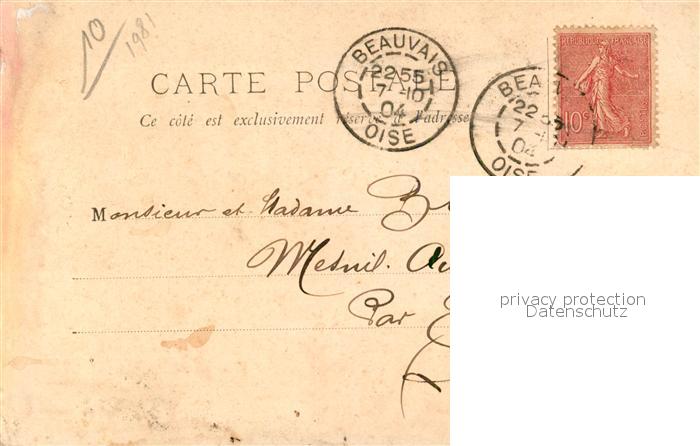 10
1981
CARTE POSTALE
Ce côté est exclusivement réservé à l'adresse
BEAUVAIS
22 55
7 -10
04
OISE
BEA
22
7
04
OISE
REPUBLIQUE FRANÇAISE
10c
Monsieur et Madame
Mesnil.
Par
privacy protection
Datenschutz